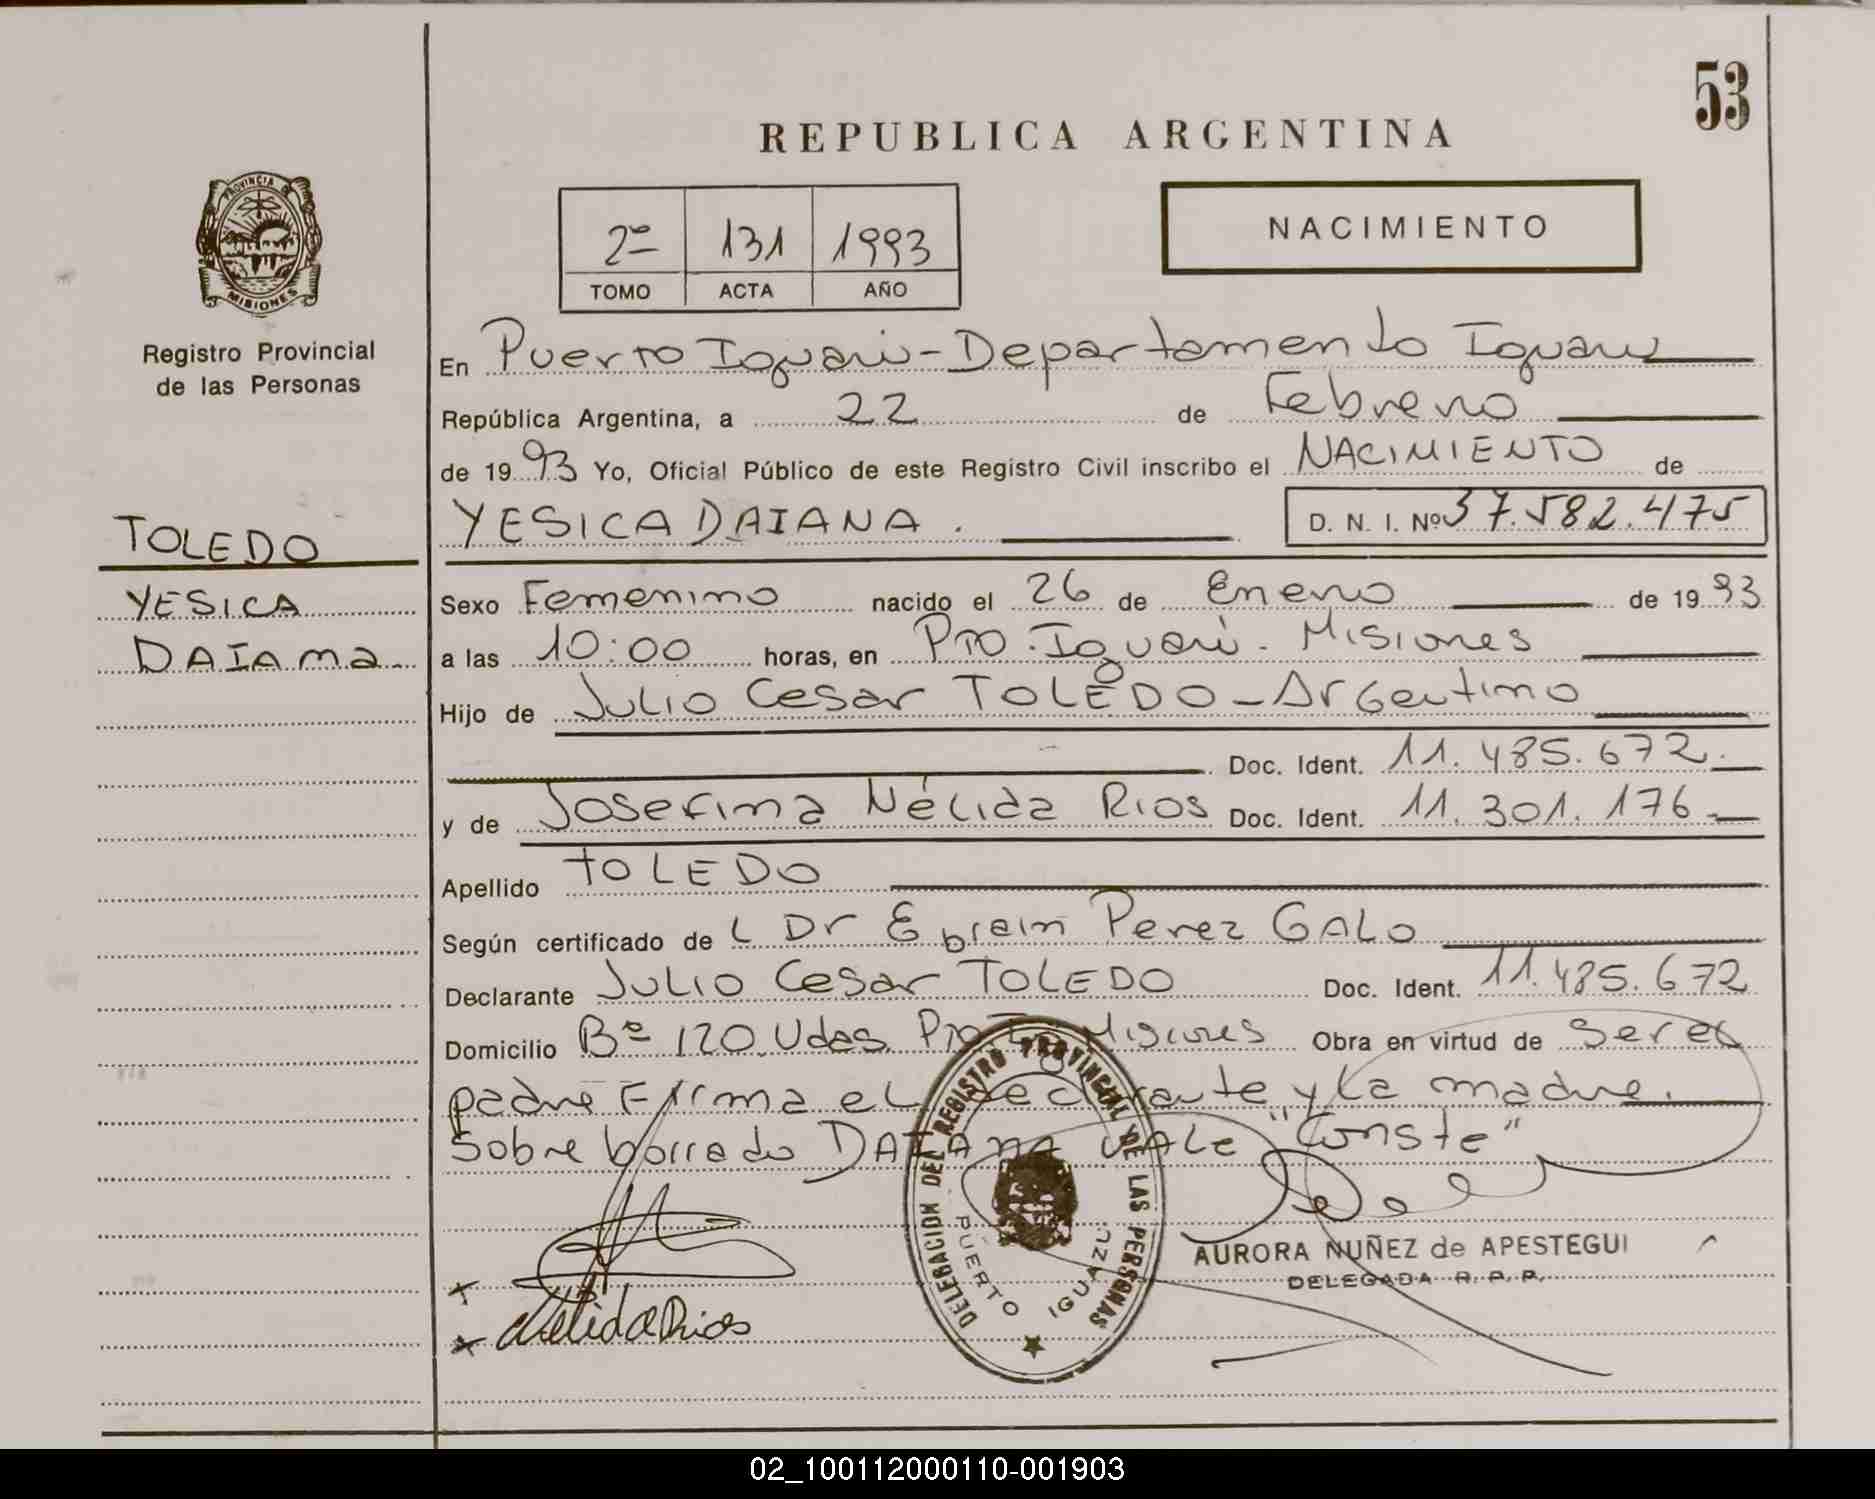 53
REPUBLICA ARGENTINA
2º 131 1993
TOMO ACTA AÑO
NACIMIENTO
PROVINCIA DE
MISIONES
Registro Provincial
de las Personas
TOLEDO
YESICA
DAIAna
En Puerto Iguazú - Departamento Iguazú
República Argentina, a 22 de Febrero
de 1993 Yo, Oficial Público de este Registro Civil inscribo el NACIMIENTO de
YESICA DAIANA. D. N. I. Nº 37.582.475
Sexo Femenino nacido el 26 de Enero de 1993
a las 10:00 horas, en Pto. Iguazú - Misiones
Hijo de Julio Cesar TOLEDO - Argentino
Doc. Ident. 11.485.672.
y de Josefina Nélida Rios Doc. Ident. 11.301.176
Apellido TOLEDO
Según certificado de L Dr Efrain Perez GALO
Declarante Julio Cesar TOLEDO Doc. Ident. 11.485.672
Domicilio Bº 120 Vdas. Pto Ig Misiones Obra en virtud de Ser el
padre Firma el Declarante y la madre.
Sobre borrado DAIANA VALE "Conste"
DELEGACION DEL REGISTRO PROVINCIAL DE LAS PERSONAS
PUERTO IGUAZU
AURORA NUÑEZ de APESTEGUI
DELEGADA R. P. P.
Nélida Rios
02_100112000110-001903